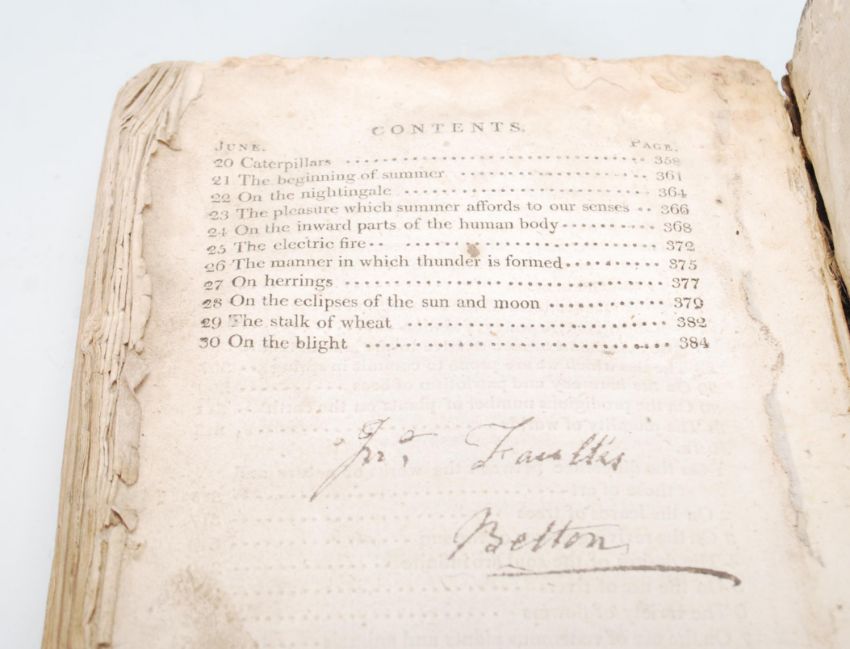 CONTENTS.
JUNE. PAGE.
20 Caterpillars 358
21 The beginning of summer 361
22 On the nightingale 364
23 The pleasure which summer affords to our senses 366
24 On the inward parts of the human body 368
25 The electric fire 372
26 The manner in which thunder is formed 375
27 On herrings 377
28 On the eclipses of the sun and moon 379
29 The stalk of wheat 382
30 On the blight 384
Belton